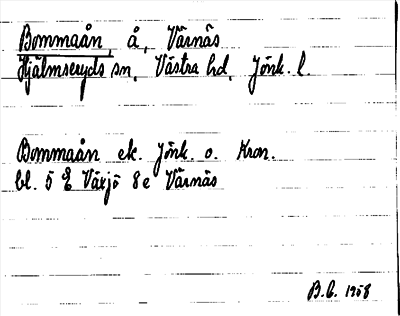 Bommaån, å, Värnäs
Hjälmseryds sn, Västra hd, Jönk. l.
Bommaån ek. Jönk. o. Kron.
bl. 5 E Växjö 8e Värnäs
B.C. 1958